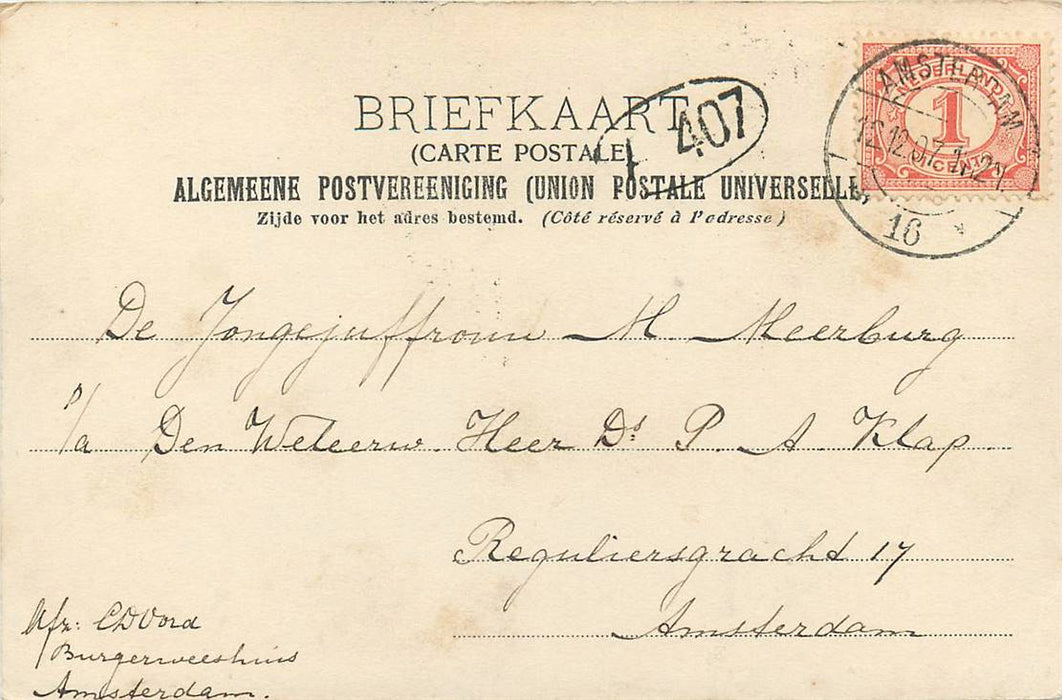 BRIEFKAART
(CARTE POSTALE)
407
ALGEMEENE POSTVEREENIGING (UNION POSTALE UNIVERSELLE)
Zijde voor het adres bestemd. (Côté réservé à l'adresse)
AMSTERDAM
NEDERLAND
1
CENT
12.07
16
De Jongejuffrouw M. Meerburg
p/a Den Weleerw. Heer Ds. P. A Klap.
Reguliersgracht 17
Amsterdam
Afz: CD Vord
Burgerweeshuis
Amsterdam.